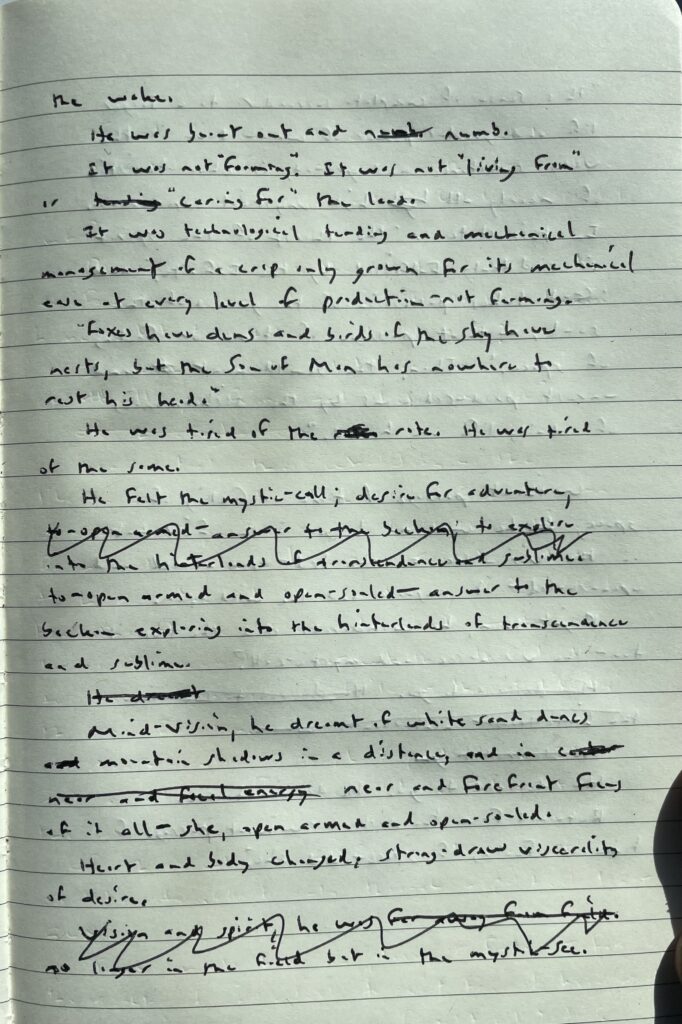 the wake.
He was burnt out and numb numb.
It was not "farming". It was not "living from"
or tending "caring for" the land.
It was technological tending and mechanical
management of a crop only grown for its mechanical
ease at every level of production—not farming.
"Foxes have dens and birds of the sky have
nests, but the Son of Man has nowhere to
rest his head."
He was tired of the rote. He was tired
of the same.
He felt the mystic-call; desire for adventure,
to—open armed—answer to the beckon; to explore
into the hinterlands of transcendence and sublime.
to—open armed and open-souled—answer to the
beckon exploring into the hinterlands of transcendence
and sublime.
He dreamt
Mind-vision, he dreamt of white sand dunes
and mountain shadows in a distance, and in
near and focal energy near and forefront focus
of it all—she, open armed and open-souled.
Heart and body changed, string-draw viscerality
of desire.
Vision and spirit, he was far away from
no longer in the field but in the mystic-see.